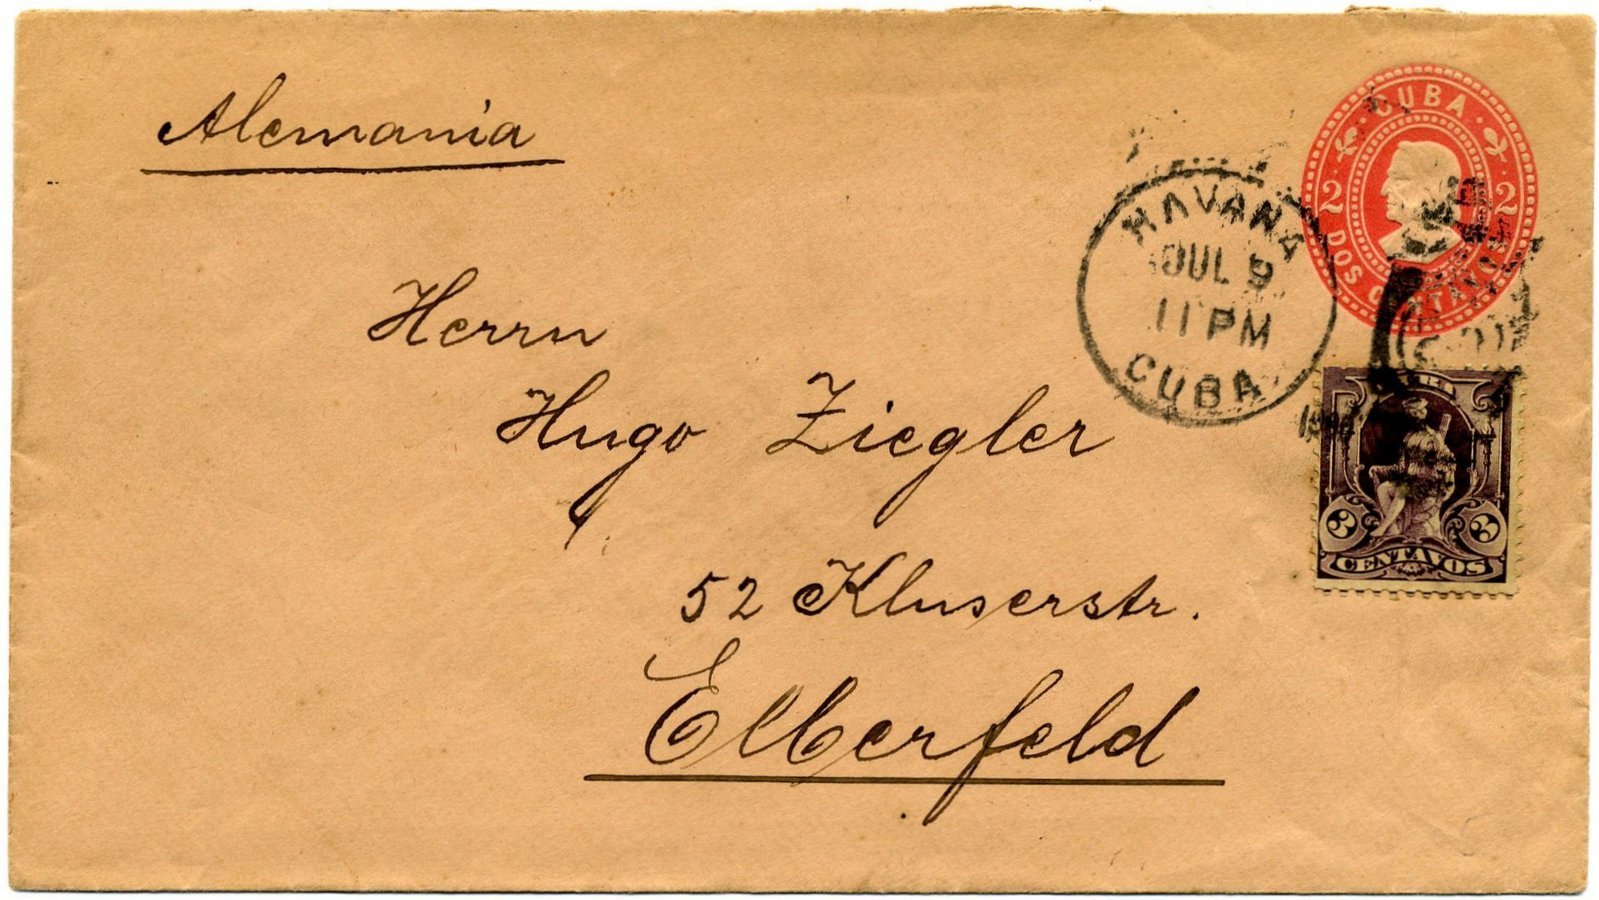 Alemania
CUBA
2 2
DOS CENTAVOS
HAVANA
JUL 9
11 PM
CUBA
Herrn
Hugo Ziegler
52 Kluserstr.
Elberfeld
3 3
CENTAVOS